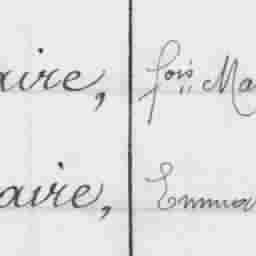 aire, fois Ma
aire, Emma